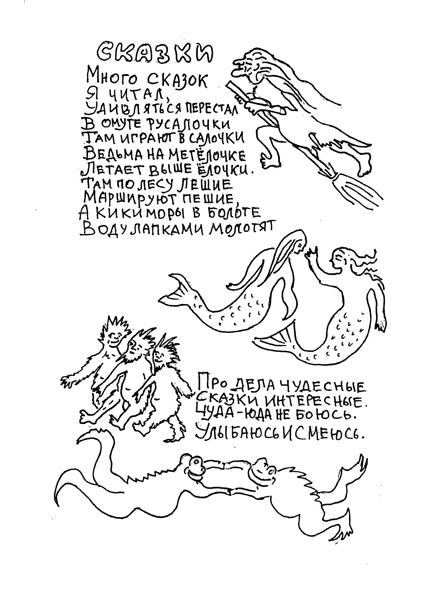 СКАЗКИ
Много сказок
Я читал,
Удивляться перестал
В омуте русалочки
Там играют в салочки
Ведьма на метёлочке
Летает выше ёлочки.
Там по лесу лешие
Маршируют пешие,
А кикиморы в болоте
Воду лапками молотят
Про дела чудесные
Сказки интересные.
Чуда-юда не боюсь.
Улыбаюсь и смеюсь.